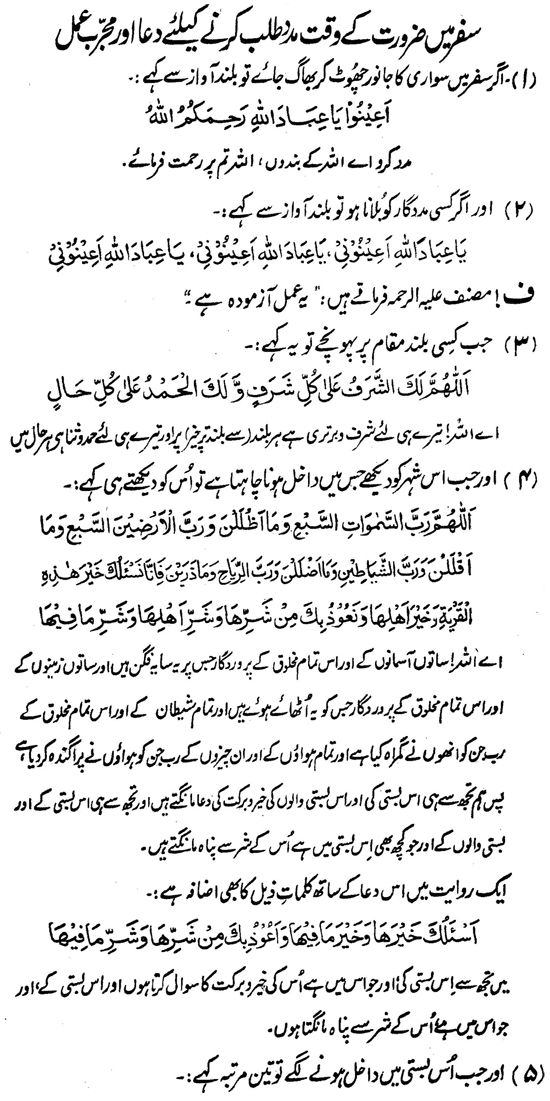 سفر میں ضرورت کے وقت مدد طلب کرنے کیلئے دعا اور مجرّب عمل
(۱)۔ اگر سفر میں سواری کا جانور چھوٹ کر بھاگ جائے تو بلند آواز سے کہے :۔
اَعِیْنُوْا یَا عِبَادَ اللّٰهِ رَحِمَکُمُ اللّٰهُ
مدد کرو اے اللہ کے بندوں، اللہ تم پر رحمت فرمائے.
(۲) اور اگر کسی مددگار کو بُلانا ہو تو بلند آواز سے کہے :۔
یَا عِبَادَ اللّٰهِ اَعِیْنُوْنِیْ، یَا عِبَادَ اللّٰهِ اَعِیْنُوْنِیْ، یَا عِبَادَ اللّٰهِ اَعِیْنُوْنِیْ
ف! مصنف علیہ الرحمہ فرماتے ہیں: "یہ عمل آزمودہ ہے"
(۳) جب کِسی بلند مقام پر پہونچے تو یہ کہے :۔
اَللّٰهُمَّ لَكَ الشَّرَفُ عَلٰی کُلِّ شَرَفٍ وَّلَكَ الْحَمْدُ عَلٰی کُلِّ حَالٍ
اے اللہ! تیرے ہی لئے شرف و برتری ہے ہر بلند (سے بلند تر چیز) پر اور تیرے ہی لئے حمد و ثنا ہی ہر حال میں
(۴) اور جب اس شہر کو دیکھے جس میں داخل ہونا چاہتا ہے تو اُس کو دیکھتے ہی کہے :۔
اَللّٰهُمَّ رَبَّ السَّمٰوَاتِ السَّبْعِ وَمَا اَظْلَلْنَ وَرَبَّ الْاَرْضِیْنَ السَّبْعِ وَمَا
اَقْلَلْنَ وَرَبَّ الشَّیَاطِیْنِ وَمَا اَضْلَلْنَ وَرَبَّ الرِّیَاحِ وَمَا ذَرَیْنَ فَاِنَّا نَسْئَلُكَ خَیْرَ هٰذِهِ
الْقَرْیَةِ وَخَیْرَ اَهْلِهَا وَنَعُوْذُ بِكَ مِنْ شَرِّهَا وَشَرِّ اَهْلِهَا وَشَرِّ مَا فِیْهَا
اے اللہ! ساتوں آسمانوں کے اور اس تمام مخلوق کے پروردگار جس پر یہ سایہ فگن ہیں اور ساتوں زمینوں کے
اور اس تمام مخلوق کے پروردگار جس کو یہ اُٹھائے ہوئے ہیں اور تمام شیطان کے اور اس تمام مخلوق کے
رب جن کو انھوں نے گمراہ کیا ہے اور تمام ہواؤں کے اور ان چیزوں کے رب جن کو ہواؤں نے پراگندہ کر دیا ہے
پس ہم تجھ سے ہی اس بستی کی اور اس بستی والوں کی خیر و برکت کی دعا مانگتے ہیں اور تجھ سے ہی اس بستی کے اور
بستی والوں کے اور جو کچھ بھی اِس بستی میں ہے اُس کے شر سے پناہ مانگتے ہیں۔
ایک روایت میں اس دعا کے ساتھ کلمات ذیل کا بھی اضافہ ہے :۔
اَسْئَلُكَ خَیْرَهَا وَخَیْرَ مَا فِیْهَا وَاَعُوْذُ بِكَ مِنْ شَرِّهَا وَشَرِّ مَا فِیْهَا
میں تجھ سے اِس بستی کی اور جو اس میں ہے اُس کی خیر و برکت کا سوال کرتا ہوں اور اس بستی کے، اور
جو اس میں ہے اُس کے شر سے پناہ مانگتا ہوں۔
(۵) اور جب اُس بستی میں داخل ہونے لگے تو تین مرتبہ کہے :۔